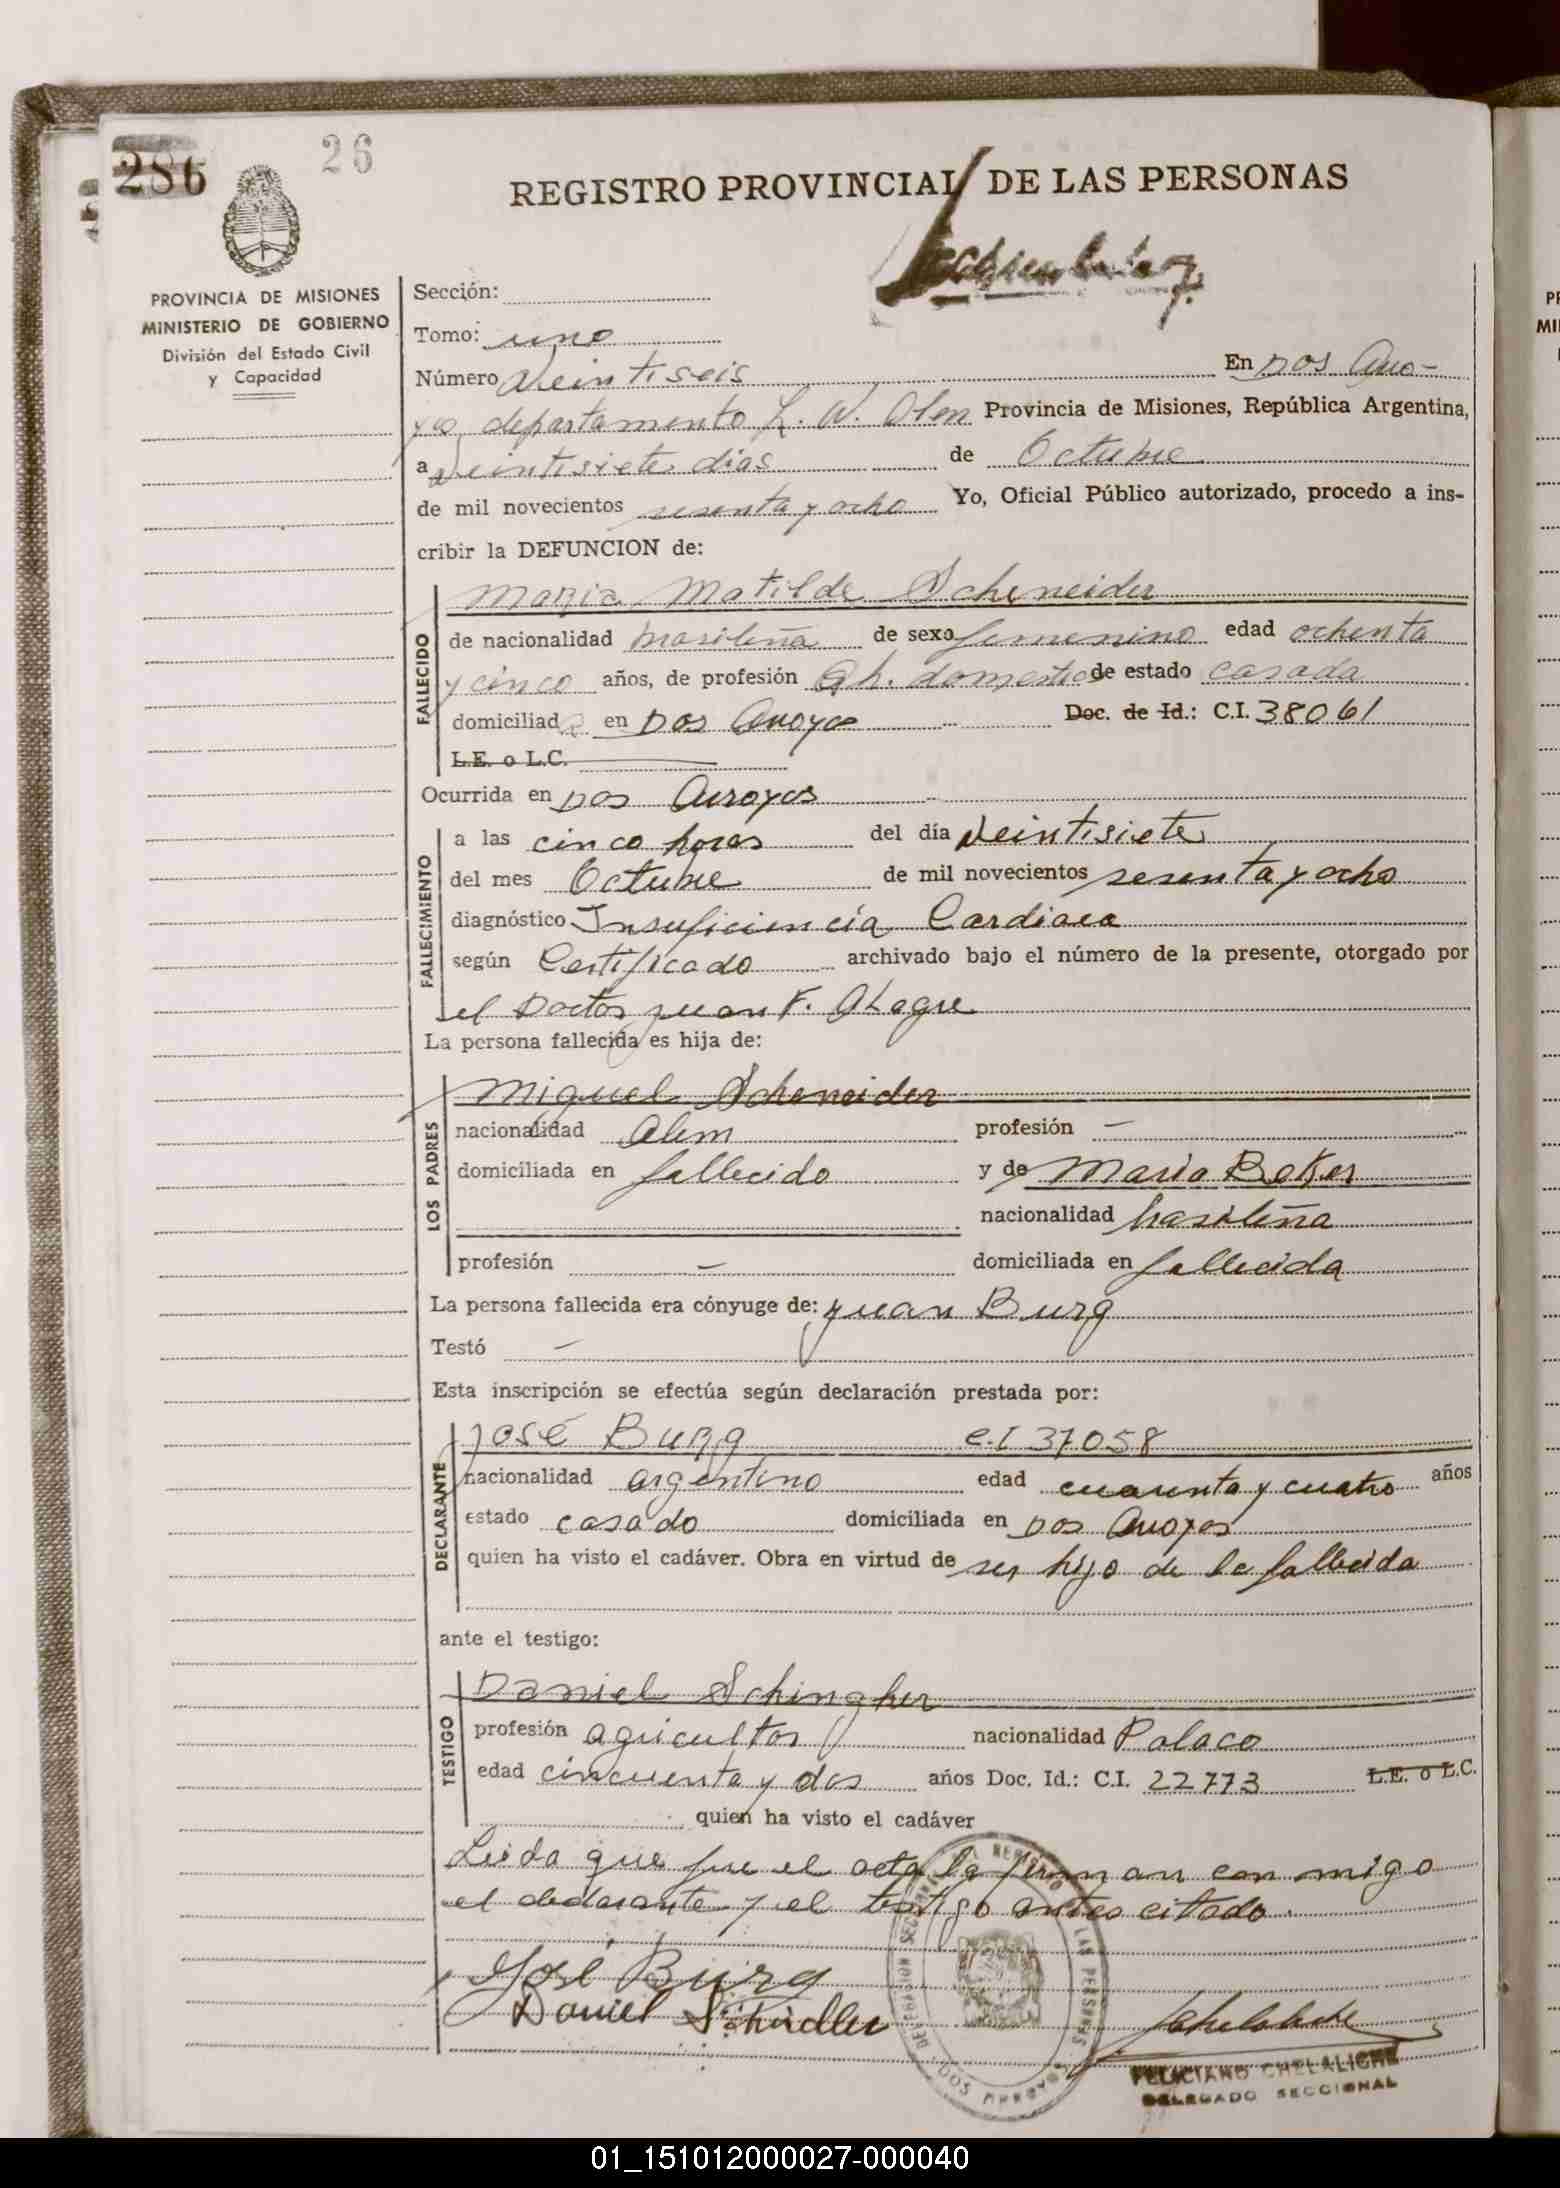 286
26
REGISTRO PROVINCIAL DE LAS PERSONAS
PROVINCIA DE MISIONES
MINISTERIO DE GOBIERNO
División del Estado Civil
y Capacidad
Sección:
Tomo: uno
Número Veintiseis En Dos Arro-
yos departamento L. N. Alem Provincia de Misiones, República Argentina,
a Veintisiete dias de Octubre
de mil novecientos sesenta y ocho Yo, Oficial Público autorizado, procedo a ins-
cribir la DEFUNCION de:
FALLECIDO
Maria Matilde Scheneider
de nacionalidad brasileña de sexo femenino edad ochenta
y cinco años, de profesión Qh. domestic de estado casada
domiciliada en Dos Arroyos Doc. de Id.: C.I. 38061
L.E. o L.C.
Ocurrida en Dos Arroyos
FALLECIMIENTO
a las cinco horas del día Veintisiete
del mes Octubre de mil novecientos sesenta y ocho
diagnóstico Insuficiencia Cardiaca
según Certificado archivado bajo el número de la presente, otorgado por
el Doctor Juan F. Alegre
La persona fallecida es hija de:
LOS PADRES
Miguel Scheneider
nacionalidad Alem profesión —
domiciliada en fallecido y de Maria Boker
nacionalidad brasileña
profesión — domiciliada en fallecida
La persona fallecida era cónyuge de: Juan Burg
Testó —
Esta inscripción se efectúa según declaración prestada por:
DECLARANTE
José Burg C.I 37058
nacionalidad argentino edad cuarenta y cuatro años
estado casado domiciliada en Dos Arroyos
quien ha visto el cadáver. Obra en virtud de ser hijo de la fallecida
ante el testigo:
TESTIGO
Daniel Schingher
profesión agricultor nacionalidad Polaco
edad cincuenta y dos años Doc. Id.: C.I. 22773 L.E. o L.C.
quien ha visto el cadáver
Leida que fue el acta la firman con migo
el declarante y el testigo antes citado.
José Burg
Daniel Schindler
FELICIANO CHELALICHE
DELEGADO SECCIONAL
01_151012000027-000040